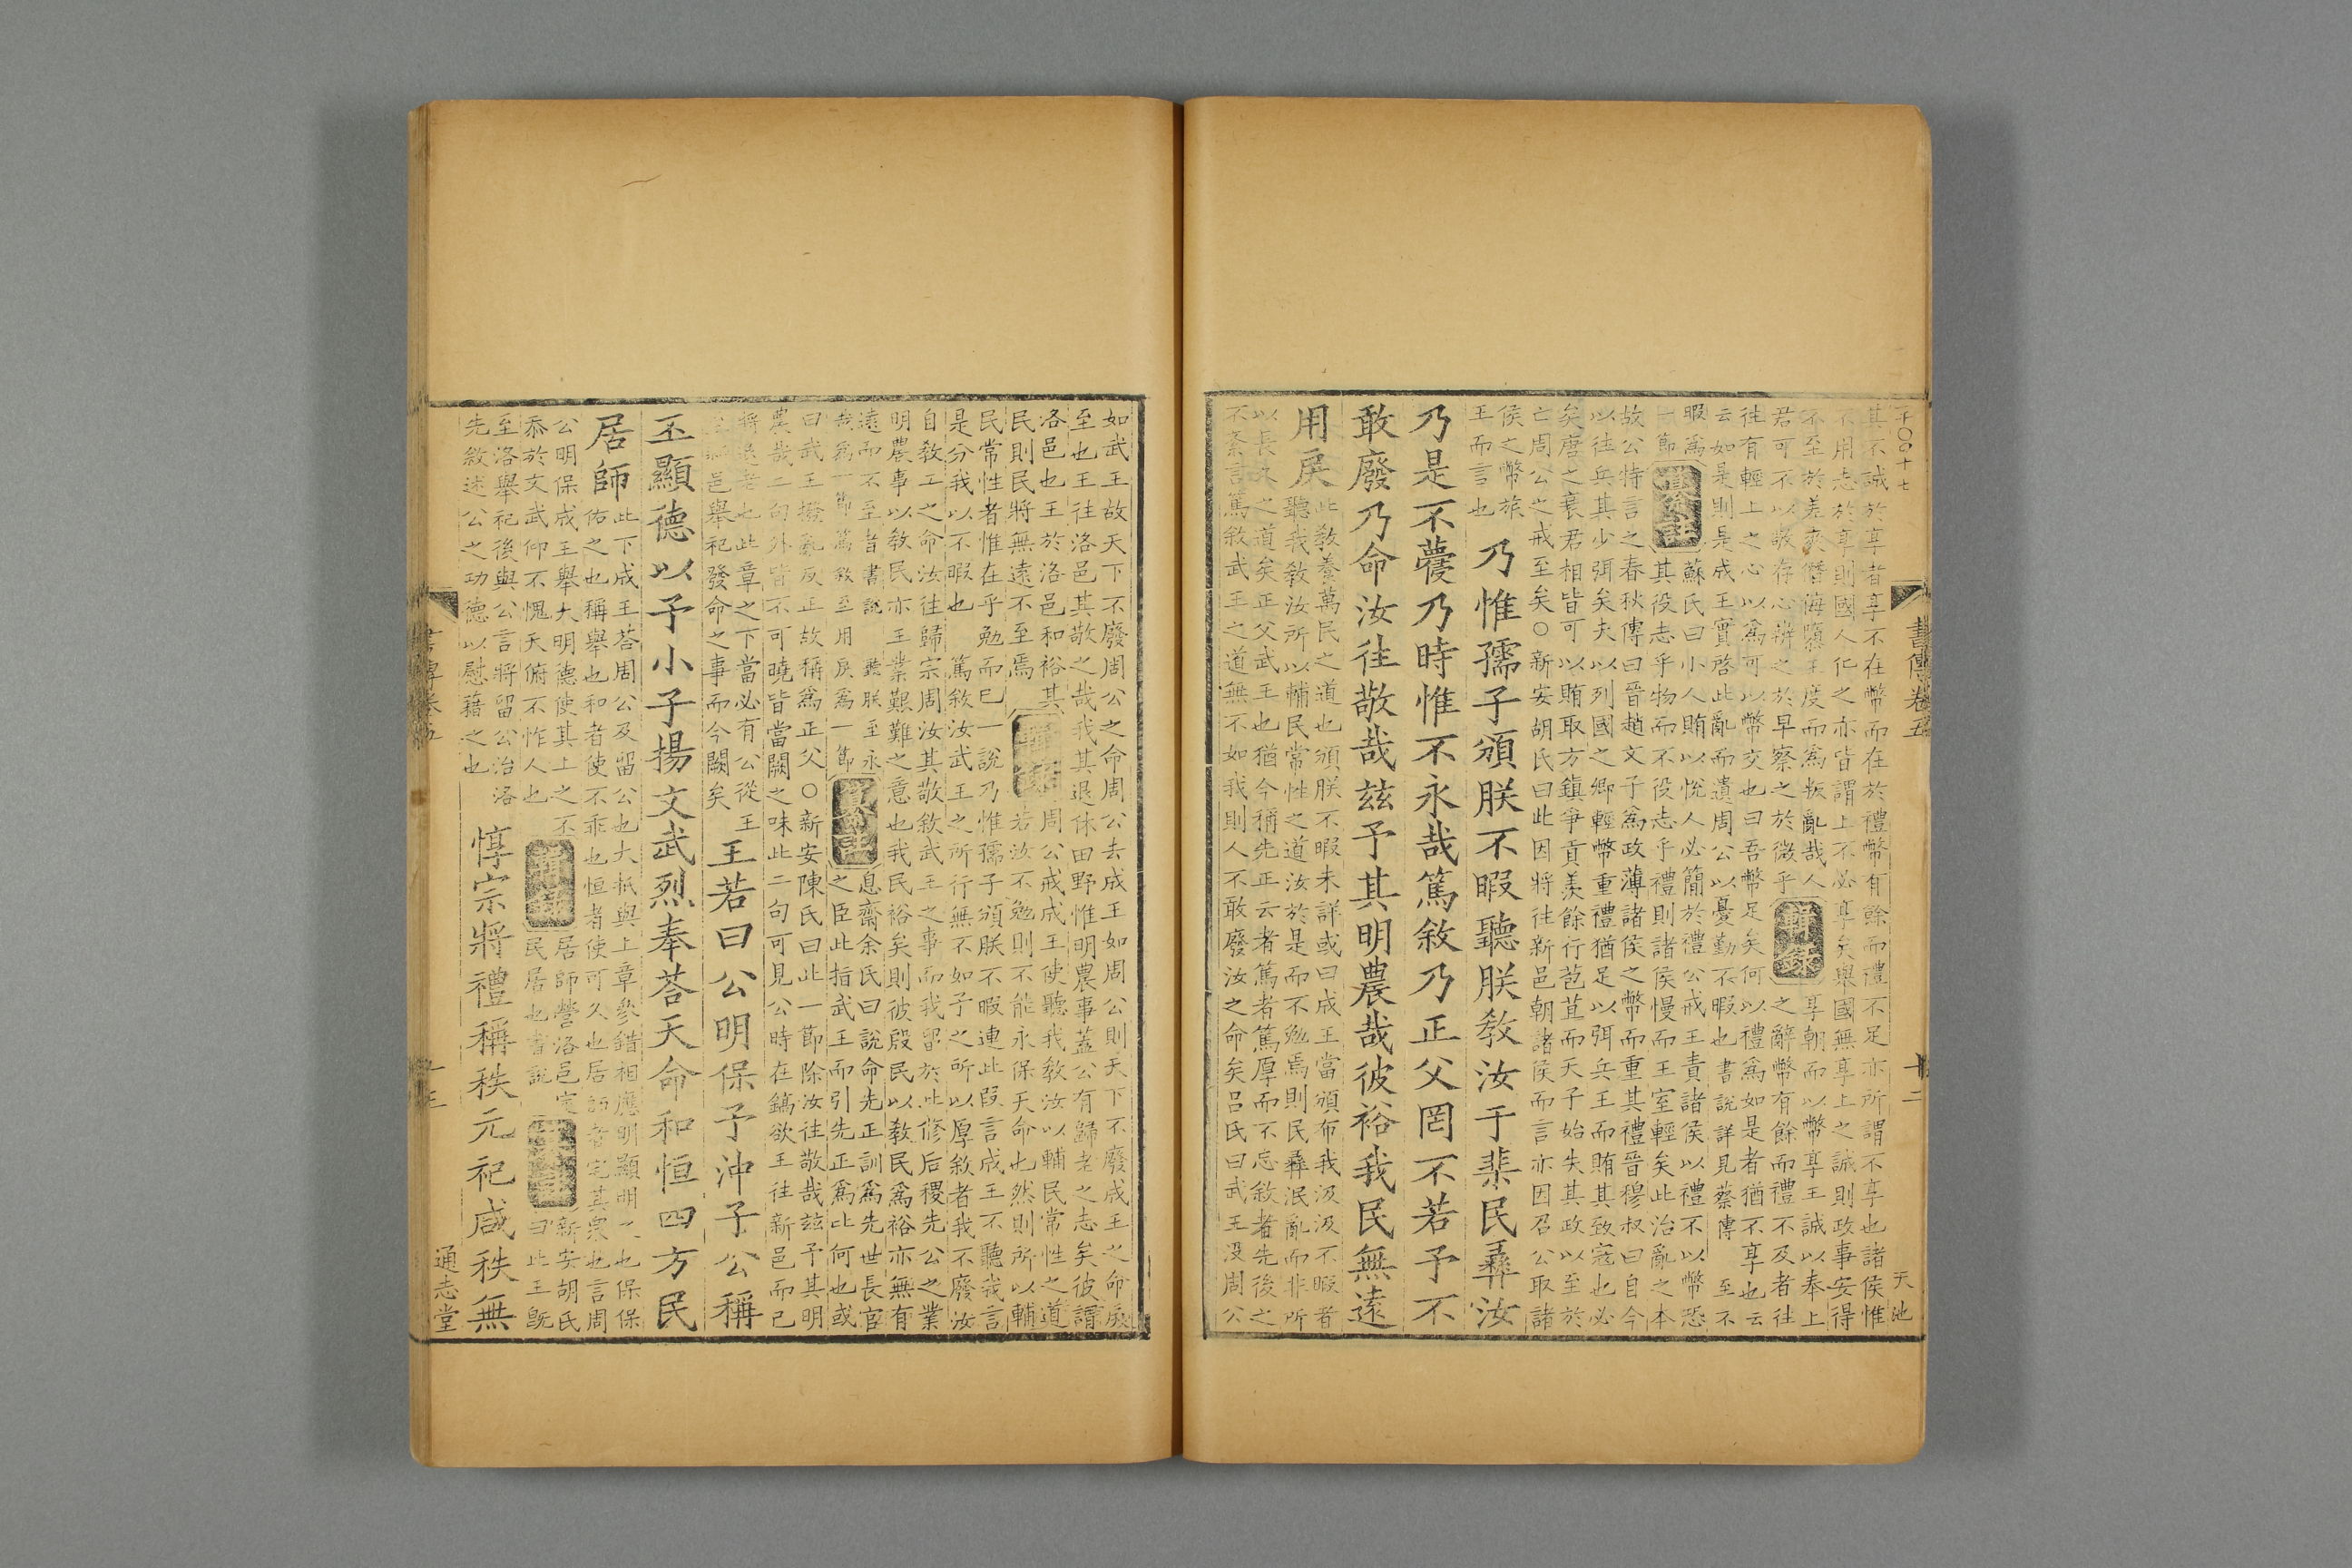 千〇〇十七
書傳卷五
十二
天池
其不誠於享者享不在幣而在於禮幣有餘而禮不足亦所謂不享也諸侯惟
不用志於享則國人化之亦皆謂上不必享矣舉國無享上之誠則政事安得
不至於差爽僭侮隳王度而爲叛亂哉人
君可不以敬存心辨之於早察之於微乎
輯錄
享朝而以幣享王誠以奉上
之辭幣有餘而禮不及者往
往有輕上之心以爲可以幣交也曰吾幣足矣何以禮爲如是者猶不享也云
云如是則是成王實啓此亂而遺周公以憂勤不暇也書說詳見蔡傳 至不
暇爲
一節
纂註
蘇氏曰小人賄以悅人必簡於禮公戒王責諸侯以禮不以幣恐
其役志乎物而不役志乎禮則諸侯慢而王室輕矣此治亂之本
故公特言之春秋傳曰晉趙文子爲政薄諸侯之幣而重其禮晉穆叔曰自今
以往兵其少弭矣夫以列國之卿輕幣重禮猶足以弭兵王而賄其致寇也必
矣唐之衰君相皆可以賄取方鎮爭貢羨餘行苞苴而天子始失其政以至於
亡周公之戒至矣〇新安胡氏曰此因將往新邑朝諸侯而言亦因召公取諸
侯之幣旅
王而言也
乃惟孺子頒朕不暇聽朕敎汝于棐民彝汝
乃是不蘉乃時惟不永哉篤敘乃正父罔不若予不
敢廢乃命汝往敬哉茲予其明農哉彼裕我民無遠
用戾
此敎養萬民之道也頒朕不暇未詳或曰成王當頒布我汲汲不暇者
聽我敎汝所以輔民常性之道汝於是而不勉焉則民彝泯亂而非所
以長久之道矣正父武王也猶今稱先正云者篤者篤厚而不忘敘者先後之
不紊言篤敘武王之道無不如我則人不敢廢汝之命矣呂氏曰武王沒周公
如武王故天下不廢周公之命周公去成王如周公則天下不廢成王之命戾
至也王往洛邑其敬之哉我其退休田野惟明農事蓋公有歸老之志矣彼謂
洛邑也王於洛邑和裕其
民則民將無遠不至焉
輯錄
周公戒成王使聽我敎汝以輔民常性之道
若汝不勉則不能永保天命也然則所以輔
民常性者惟在乎勉而已一說乃惟孺子頒朕不暇連此段言成王不聽我言
是分我以不暇也 篤敘汝武王之所行無不如予之所以厚敘者我不廢汝
自敎工之命汝往歸宗周汝其敬敘武王之事而我留於此修后稷先公之業
明農事以敎民亦王業艱難之意也我民裕矣則彼殷民以敎民爲裕亦無有
遠而不至者書說 聽朕至永
哉爲一節篤敘至用戾爲一節
纂註
息齋余氏曰說命先正訓爲先世長官
之臣此指武王而引先正爲比何也或
曰武王撥亂反正故稱爲正父〇新安陳氏曰此一節除汝往敬哉茲予其明
農哉二句外皆不可曉皆當闕之味此二句可見公時在鎬欲王往新邑而己
將退老也此章之下當必有公從王
至新邑舉祀發命之事而今闕矣
王若曰公明保予沖子公稱
丕顯德以予小子揚文武烈奉荅天命和恒四方民
居師
此下成王荅周公及留公也大抵與上章參錯相應明顯明之也保保
佑之也稱舉也和者使不乖也恒者使可久也居師者宅其衆也言周
公明保成王舉大明德使其上之不
忝於文武仰不愧天俯不怍人也
輯錄
居師營洛邑定
民居也書說
纂註
新安胡氏
曰此王旣
至洛舉祀後與公言將留公治洛
先敘述公之功德以慰藉之也
惇宗將禮稱秩元祀咸秩無
通志堂